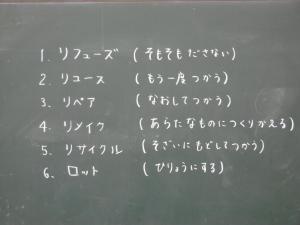 1. リフューズ (そもそもださない)
2. リユース (もう一度つかう)
3. リペア (なおしてつかう)
4. リメイク (あらたなものにつくりかえる)
5. リサイクル (そざいにもどしてつかう)
6. ロット (ひりょうにする)